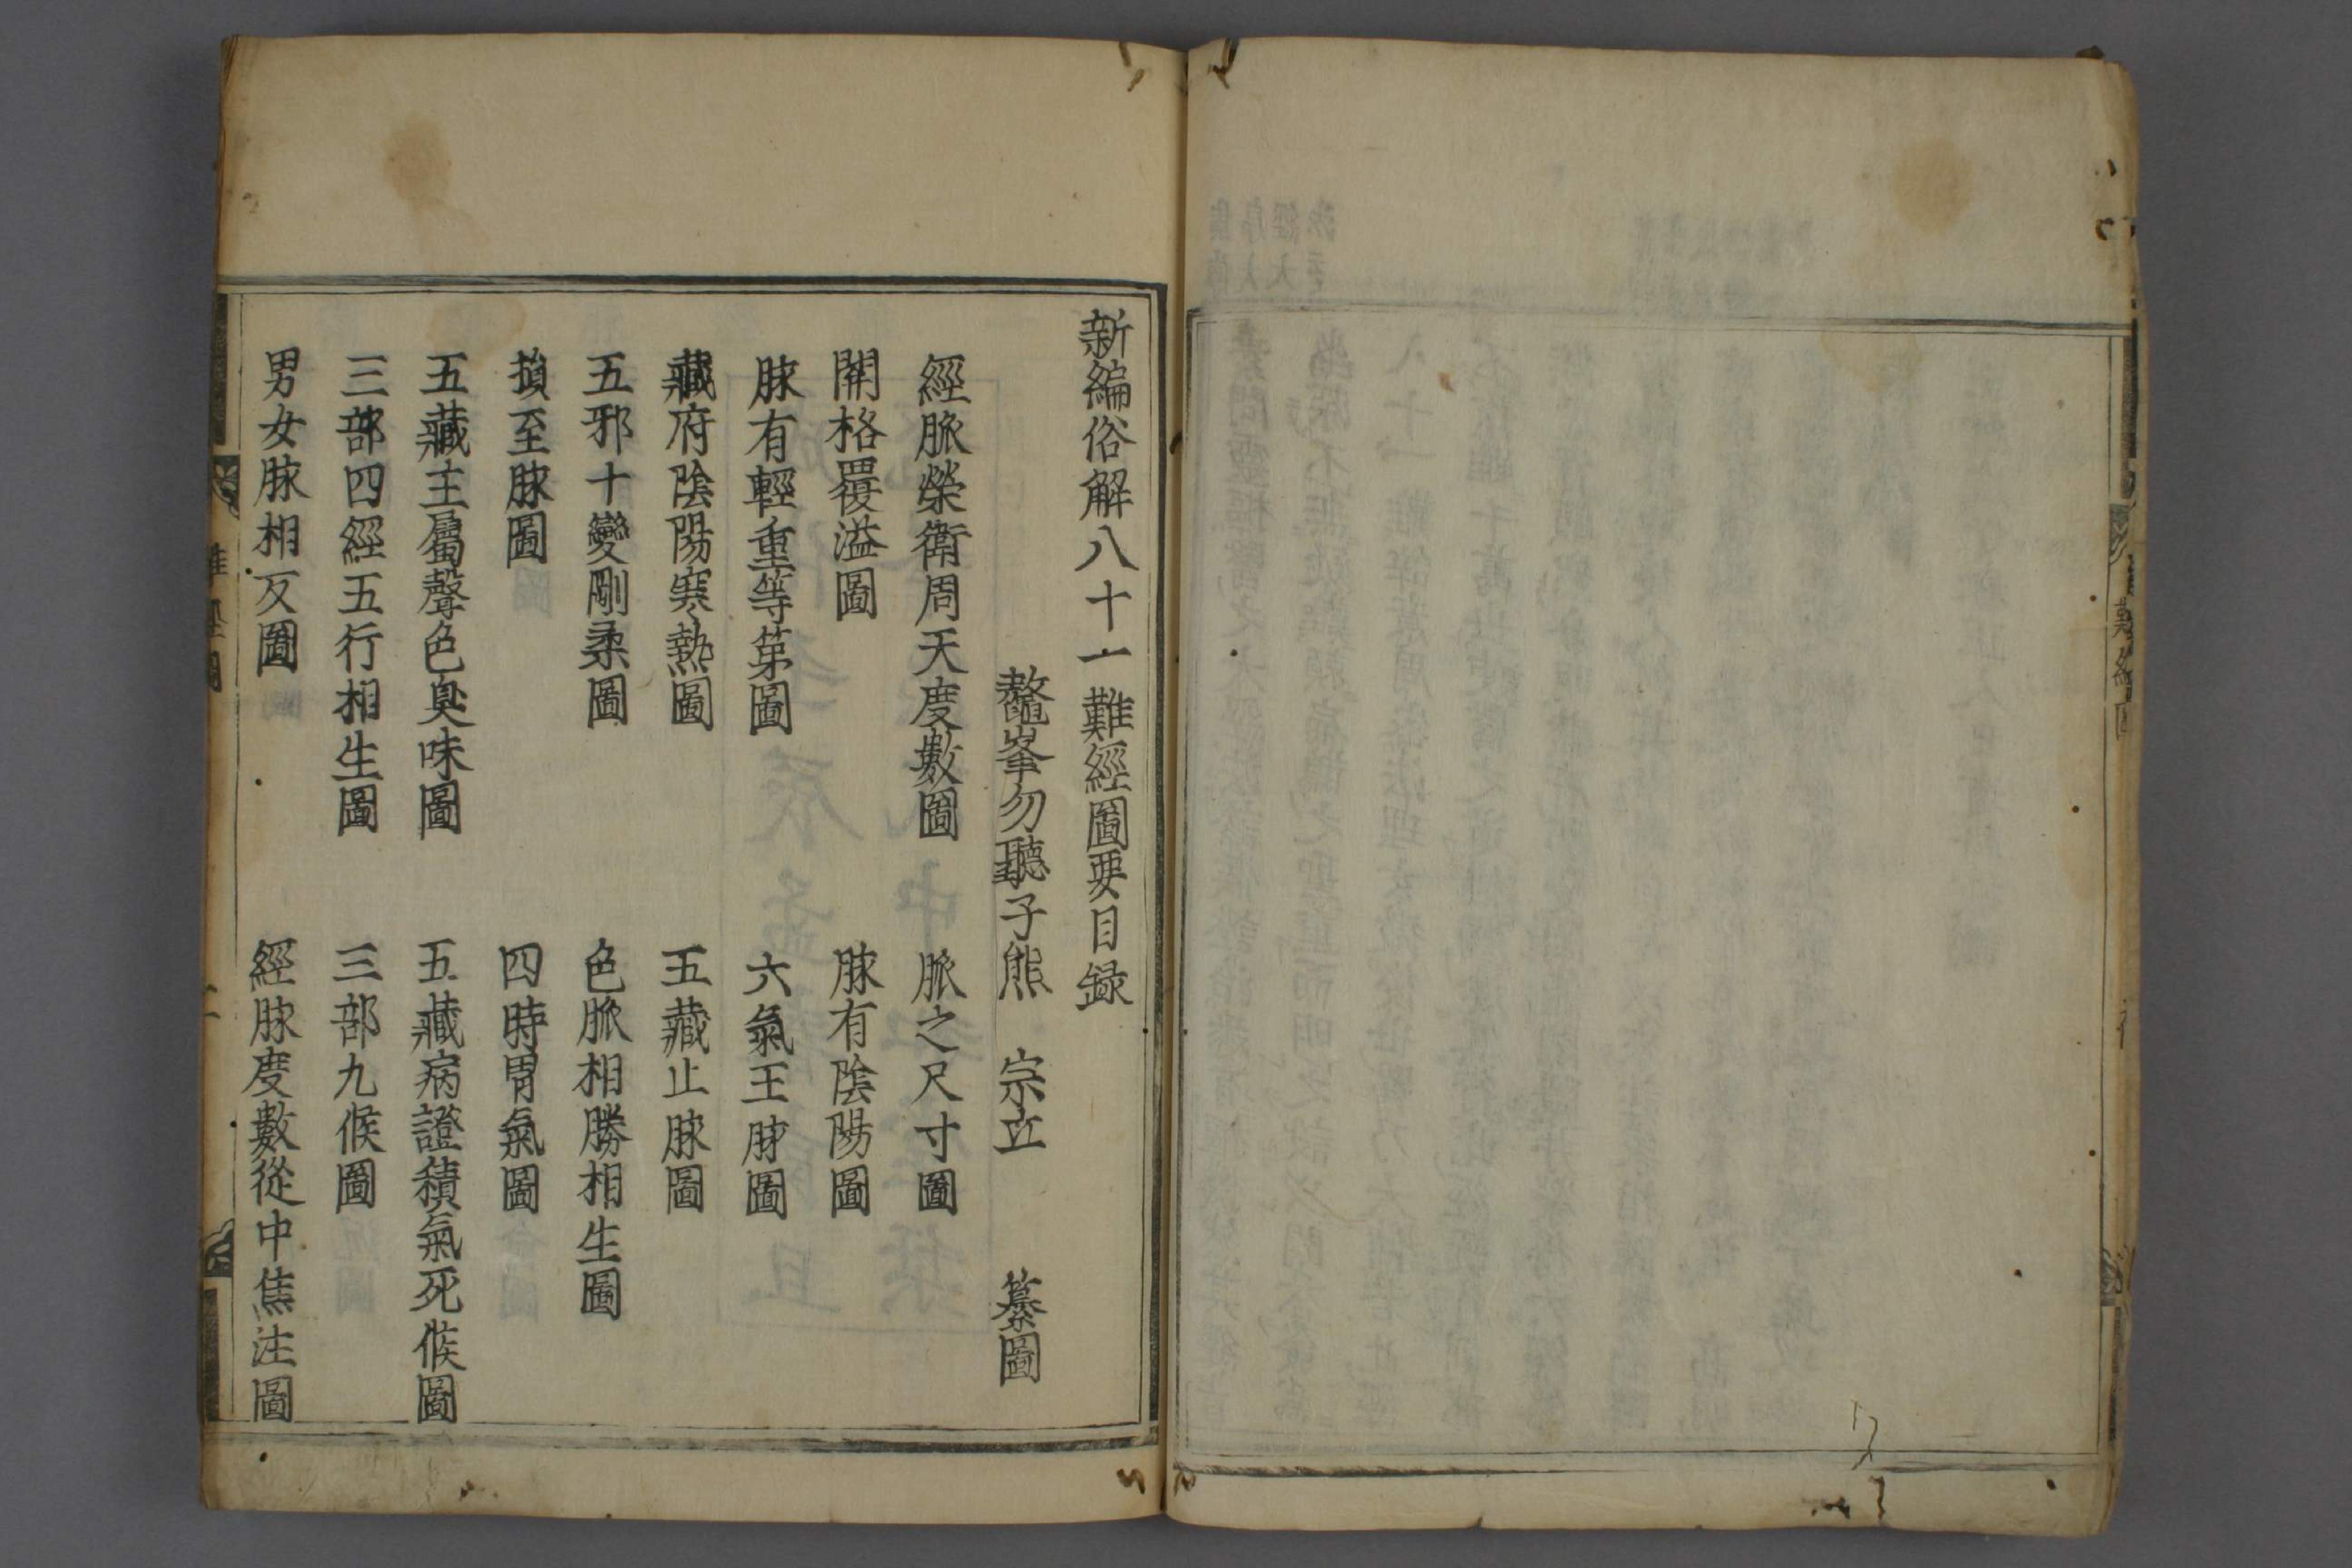 新編俗解八十一難經圖要目録
鼇峯勿聽子熊 宗立 纂圖
經脈榮衛周天度數圖 脈之尺寸圖
關格覆溢圖 脉有陰陽圖
脉有輕重等第圖 六氣王脉圖
藏府陰陽寒熱圖 五藏止脉圖
五邪十變剛柔圖 色脈相勝相生圖
損至脉圖 四時胃氣圖
五藏主屬聲色臭味圖 五藏病證積氣死候圖
三部四經五行相生圖 三部九候圖
男女脉相反圖 經脉度數從中焦注圖